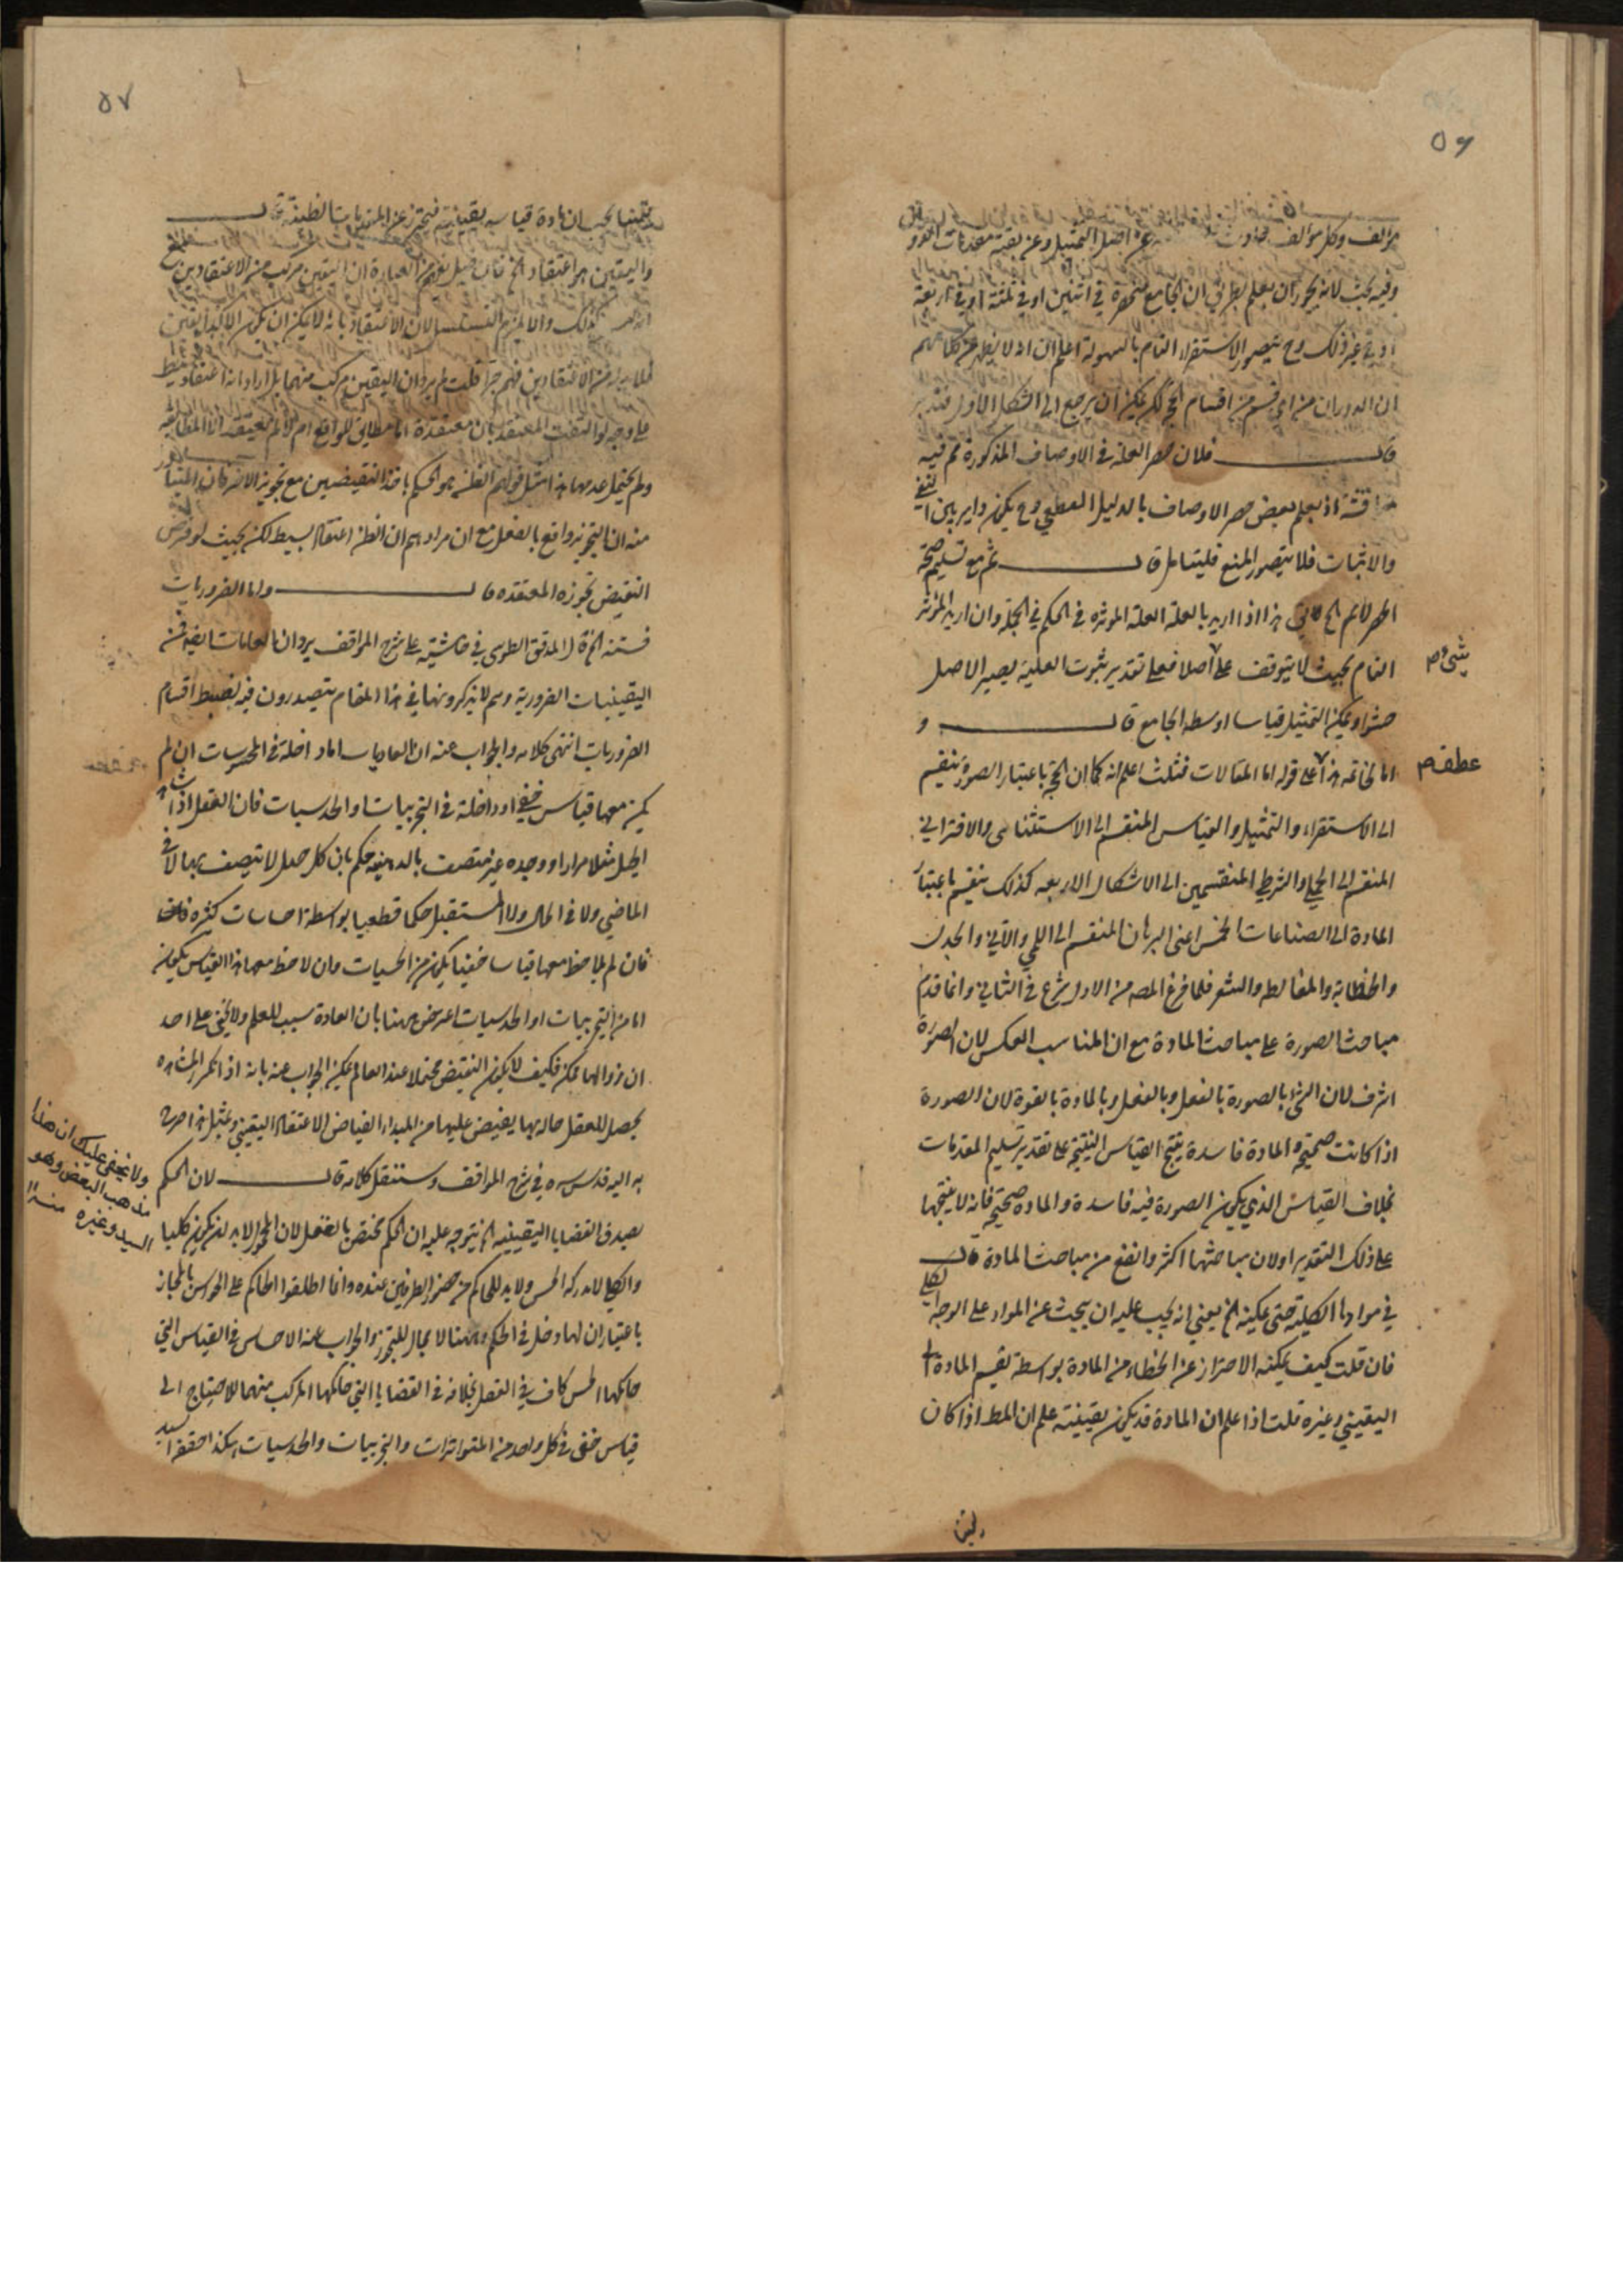 ٥٦
مؤلف وكل مؤلف محادث عن اصل التمثيل وعن بقية مقدمات
وفيه بحث لانه يجوز ان يعلم بطريق ان الجامع منحصرة في اثنين او في ثلثة او في اربعة
او في غير ذلك وح يتصور الاستقراء التام بالسهولة اعلم ان انه لا يظهر من كلامهم
ان الدوران من اي قسم من اقسام الحجج لكن يمكن ان يرجع الى الشكل الاول فتدبر
قال فلان حصر العلة في الاوصاف المذكورة مم فيه
مناقشة اذ يعلم بعض حصر الاوصاف بالدليل القطعي وح يكون دايرا بين النفي
والاثبات فلا يتصور المنع فليتامل قال ثم مع تسليم صحة
الحصر لانم الخ لا يخفى هذا اذا اريد بالعلة العلة الموثرة في الحكم في الجملة وان اريد الموثر
التام بحيث لا يتوقف على اصلا فعلى تقدير ثبوت العلية يصير الاصل
شئ صم
حشوا ويمكن التمثيل قياسا اوسطه الجامع قال و
اما الخاتمة هذا على قوله اما المقالات فثلث اعلم انه كما ان الحجة باعتبار الصورة ينقسم
عطف صم
الى الاستقراء والتمثيل والقياس المنقسم الى الاستثنائي والاقتراني
المنقسم الى الحملي والشرطي المنقسمين الى الاشكال الاربعه كذلك ينقسم باعتبار
المادة الى الصناعات الخمس اعنى البرهان المنقسم الى اللمي والاني والجدل
والخطابه والمغالطه والشعر فلما فرغ المصه من الاول شرع في الثاني وانما قدم
مباحث الصورة على مباحث المادة مع ان المناسب العكس لان الصورة
اشرف لان الشئ بالصورة بالفعل وبالفعل وبالمادة بالقوة لان الصورة
اذا كانت صحيحة والمادة فاسدة ينتج القياس النتيجة على تقدير تسليم المقدمات
بخلاف القياس الذي يكون الصورة فيه فاسدة والمادة صحيحة فانه لا ينتجها
على ذلك التقدير او لان مباحثها اكثر وانفع من مباحث المادة قال
في موادها الكلية حتى يمكنه الخ يعني انه يجب عليه ان يبحث عن المواد على الوجه الكلي
فان قلت كيف يمكنه الاحتراز عن الخطاء من المادة بواسطة تقسيم المادة الى
اليقيني وغيره قلت اذا علم ان المادة قد يكون يقينية علم ان المط اذا كان
٥٧
يقينيا يجب ان مادة قياسه يقينية فيحترز عن المقدمات الظنية قال
واليقين هو اعتقاد الخ فان قيل يفهم من العبارة ان اليقين مركب من الاعتقادين
كذلك والا يلزم التسلسل لان الاعتقاد بانه لا يمكن ان يكون الا كذا يقين
فلا بد له من الاعتقادين فهم جرا قلت لم يرد ان اليقين مركب منهما بل اراد انه اعتقاد بسيط
على وجه لو التفت المعتقد بان معتقده اما مطابق للواقع ام لا لم يعتقد الا المطابقه
ولم يحتمل عدمها هذا مثل قولهم الظن هو الحكم باحد النقيضين مع تجويز الاخر فان المتبادر
منه ان التجويز واقع بالفعل مع ان مرادهم ان الظن اعتقاد بسيط لكن بحيث لو فرض
النقيض تجوزه المعتقده قال واما الضروريات
فستة الخ قال المدقق الطوسي في حاشيته على شرح المواقف يرد ان العاديات ايضا من
اليقينيات الضرورية وهم لا يذكرونها في هذا المقام يتصدرون فيه لضبط اقسام
الضروريات انتهى كلامه والجواب عنه ان العاديات اما داخلة في المحسوسات ان لم
يكن معها قياس خفي او داخلة في التجربيات او الحدسيات فان العقل اذا شاهد
الجبل مثلا مرارا ووجده غير متصف بالذهبية حكم بان كل جبل لا يتصف بها لا في
الماضي ولا في الحال ولا المستقبل حكما قطعيا بواسطة احساسات كثيرة
فان لم يلاحظ معها قياسا خفيا يكون من الحسيات وان لاحظ معها هذا القياس يكون
اما من التجربيات او الحدسيات اعترض ههنا بان العادة سبب للعلم ولا يخفى على احد
ان زوالها ممكن فكيف لا يكون النقيض محتملا عند العالم يمكن الجواب عنه بانه اذا تكرر المشاهدة
يحصل للعقل حاله بها يفيض عليها من المبداء الفياض الاعتقاد اليقيني وبمثل هذا صرح
به اليه قدس سره في شرح المواقف وستنقل كلامه قال لان الحكم
بصدق القضايا اليقينيه الخ يتوجه عليه ان الحكم مختص بالعقل لان المحمول لابد ان يكون كليا
ولا يخفى عليك ان هذا
مذهب البعض وهو
السيد وغيره منه
والكلي لا يدركه الحس ولا بد للحاكم من حضور الطرفين عنده وانما اطلقوا الحاكم على الحواس بالمجاز
باعتبار ان لها دخل في الحكم وههنا لا مجال للتجوز والجواب عنه الاحساس في القياس التي
حاكمها الحس كاف في الفصل بخلافه في القضايا التي حاكمها المركب منهما للاحتياج الى
قياس خفي في كل واحد من المتواترات والتجربيات والحدسيات هكذا حققه السيد